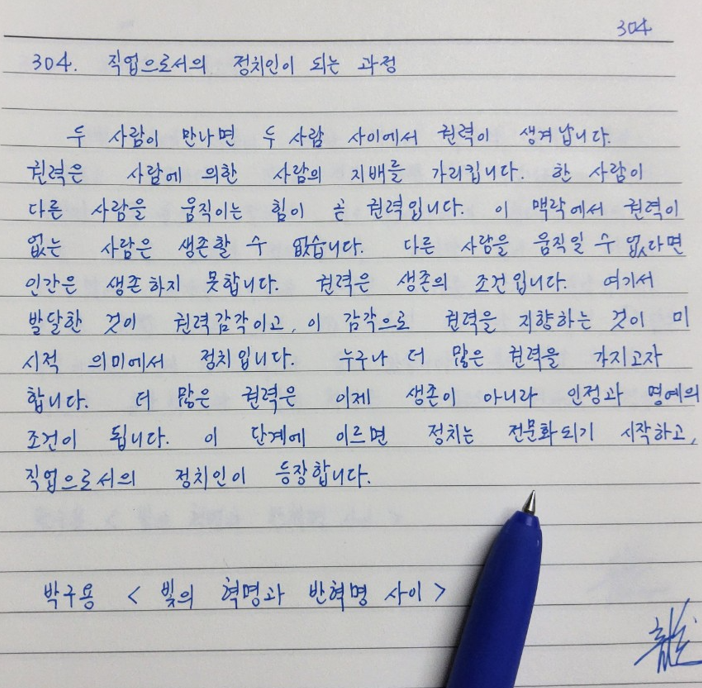 304
304. 직업으로서의 정치인이 되는 과정
두 사람이 만나면 두 사람 사이에서 권력이 생겨납니다.
권력은 사람에 의한 사람의 지배를 가리킵니다. 한 사람이
다른 사람을 움직이는 힘이 곧 권력입니다. 이 맥락에서 권력이
없는 사람은 생존할 수 없습니다. 다른 사람을 움직일 수 없다면
인간은 생존하지 못합니다. 권력은 생존의 조건입니다. 여기서
발달한 것이 권력감각이고, 이 감각으로 권력을 지향하는 것이 미
시적 의미에서 정치입니다. 누구나 더 많은 권력을 가지고자
합니다. 더 많은 권력은 이제 생존이 아니라 인정과 명예의
조건이 됩니다. 이 단계에 이르면 정치는 전문화되기 시작하고,
직업으로서의 정치인이 등장합니다.
박구용 < 빛의 혁명과 반혁명 사이 >